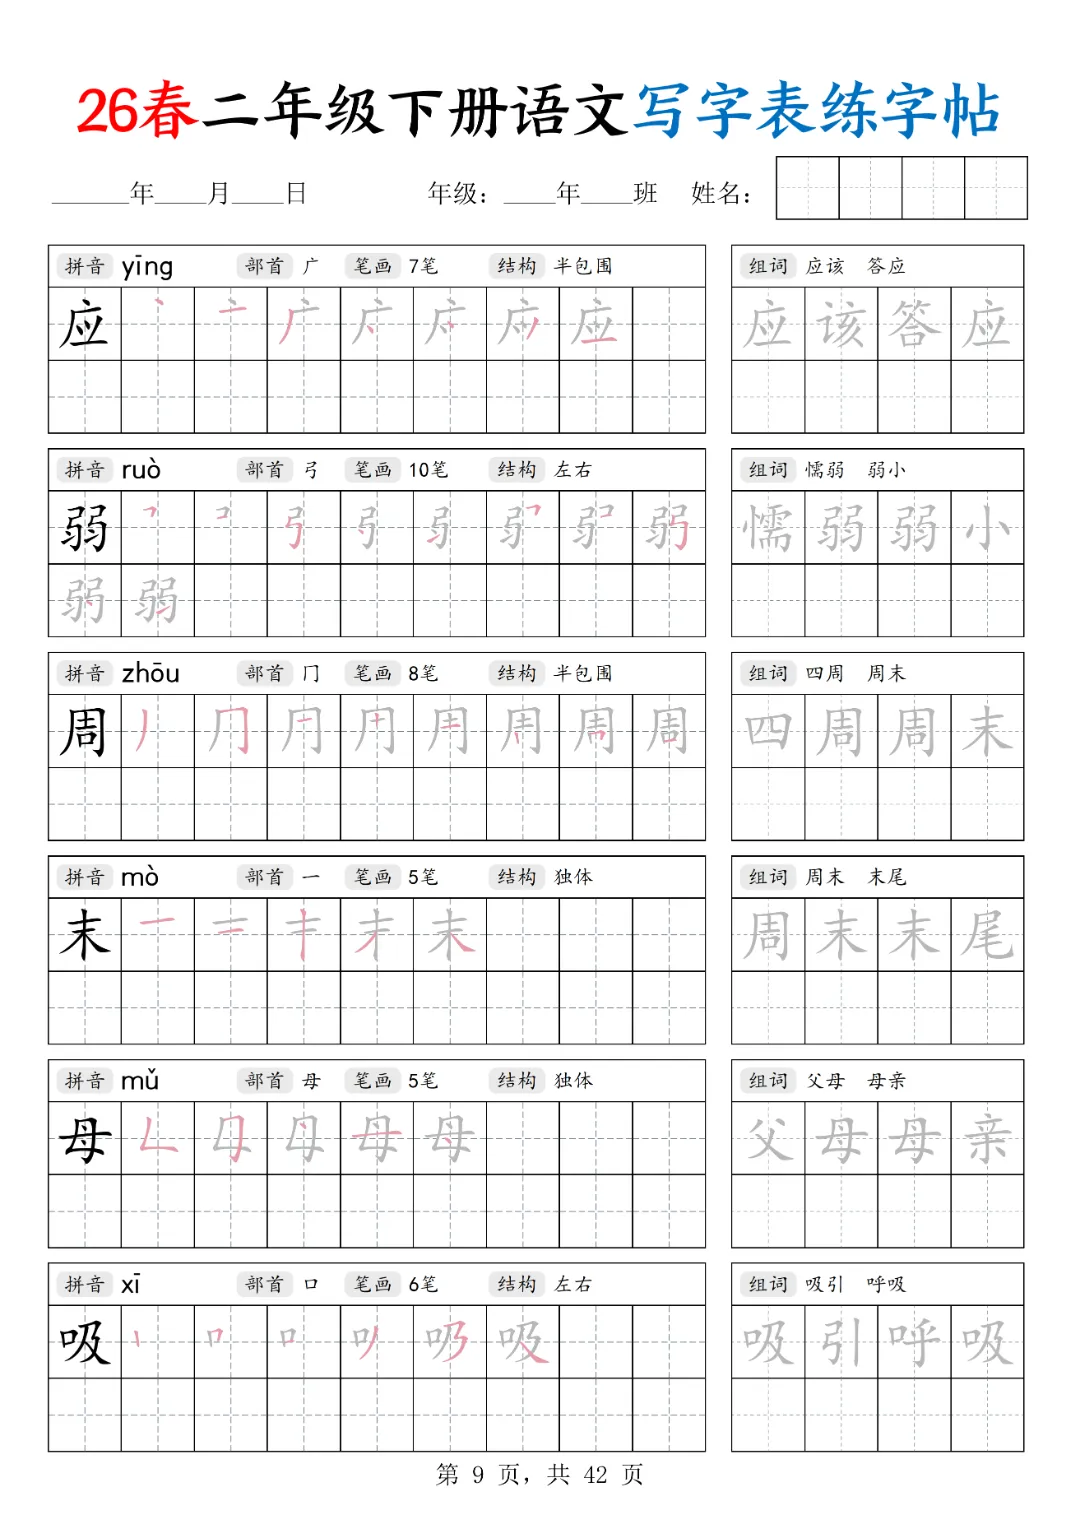 26春二年级下册语文写字表练字帖
______年____月____日 年级：____年____班 姓名：
拼音 yīng 部首 广 笔画 7笔 结构 半包围 组词 应该 答应
应 应该答应
拼音 ruò 部首 弓 笔画 10笔 结构 左右 组词 懦弱 弱小
弱 懦弱弱小
弱 弱
拼音 zhōu 部首 冂 笔画 8笔 结构 半包围 组词 四周 周末
周 四周周末
拼音 mò 部首 一 笔画 5笔 结构 独体 组词 周末 末尾
末 周末末尾
拼音 mǔ 部首 母 笔画 5笔 结构 独体 组词 父母 母亲
母 父母母亲
拼音 xī 部首 口 笔画 6笔 结构 左右 组词 吸引 呼吸
吸 吸引呼吸
第 9 页，共 42 页